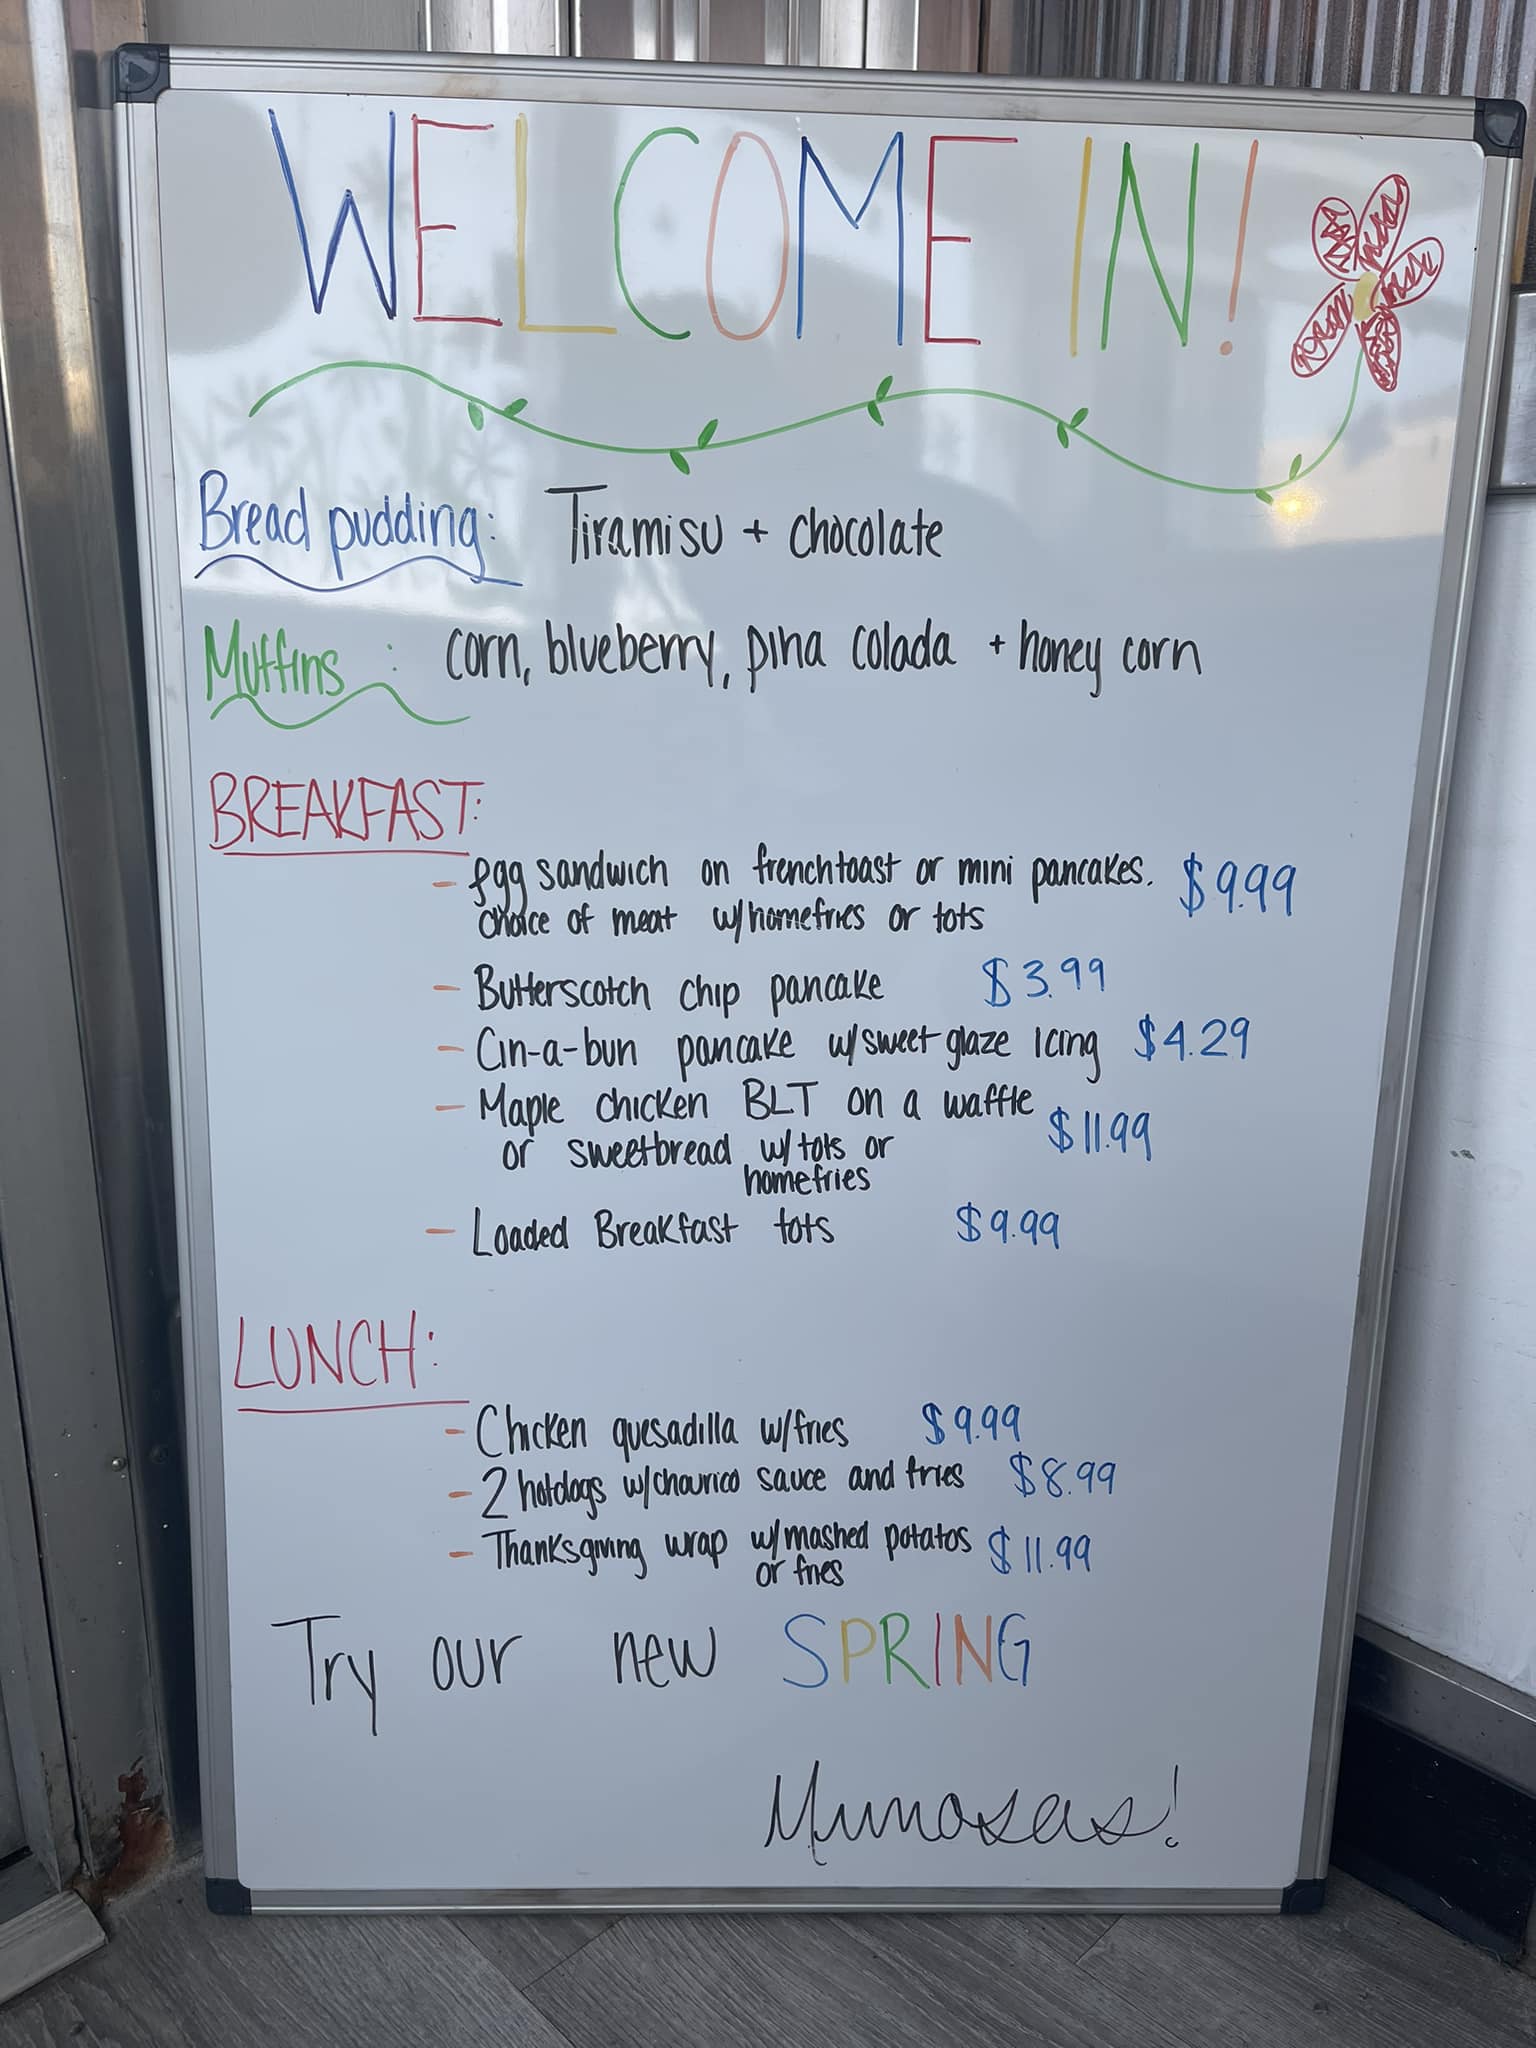 WELCOME IN!
Bread pudding: Tiramisu + chocolate
Muffins : corn, blueberry, pina colada + honey corn
BREAKFAST:
- Egg sandwich on frenchtoast or mini pancakes. $9.99
choice of meat w/homefries or tots
- Butterscotch chip pancake $3.99
- Cin-a-bun pancake w/sweet glaze icing $4.29
- Maple chicken BLT on a waffle
or sweetbread w/tots or $11.99
homefries
- Loaded Breakfast tots $9.99
LUNCH:
- Chicken quesadilla w/fries $9.99
- 2 hotdogs w/chourico sauce and fries $8.99
- Thanksgiving wrap w/mashed potatos $11.99
or fries
Try our new SPRING
Mimosas!